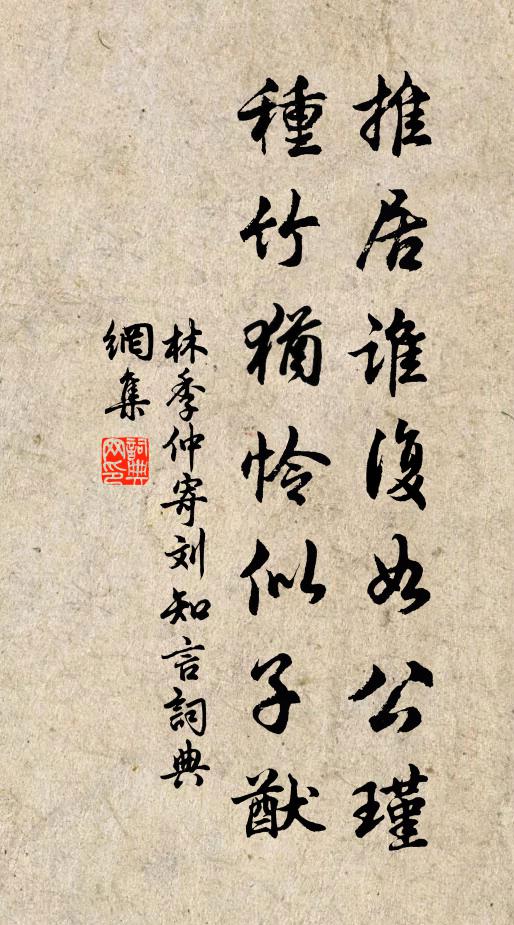 推居谁復如公瑾
種竹猶怜似子猷
林季仲寄刘知言詞典
網集
詞典网印